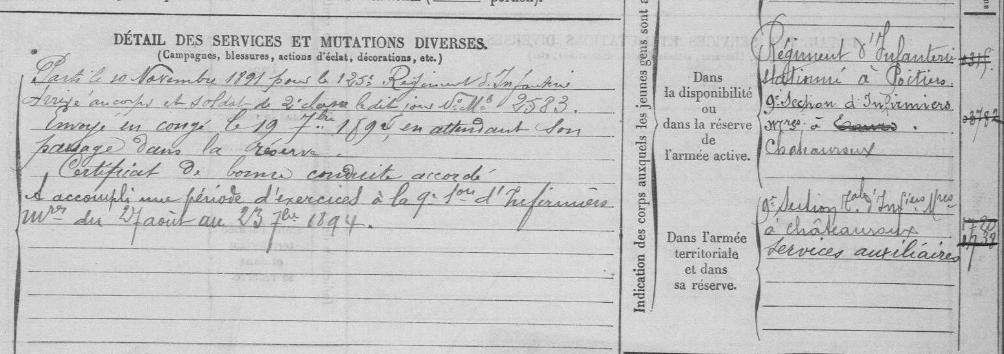 DÉTAIL DES SERVICES ET MUTATIONS DIVERSES.
(Campagnes, blessures, actions d'éclat, décorations, etc.)
Parti le 10 Novembre 1891 pour le 125e Régiment d'Infanterie
Arrivé au corps et soldat de 2e classe le dit jour No Mle 2583.
Envoyé en congé le 19 7bre 1892, en attendant son
passage dans la réserve.
Certificat de bonne conduite accordé
A accompli une période d'exercices à la 9e Son d'Infirmiers
Mres du 27 août au 23 7bre 1894.
Indication des corps auxquels les jeunes gens sont a
Dans
la disponibilité
ou
dans la réserve
de
l'armée active.
Régiment d'Infanterie
stationné à Poitiers
9e Section d'Infirmiers
Mres à Tours.
Chateauroux
Dans l'armée
territoriale
et dans
sa réserve.
9e Section Tale d'Infiers Mres
à Châteauroux
Services auxiliaires